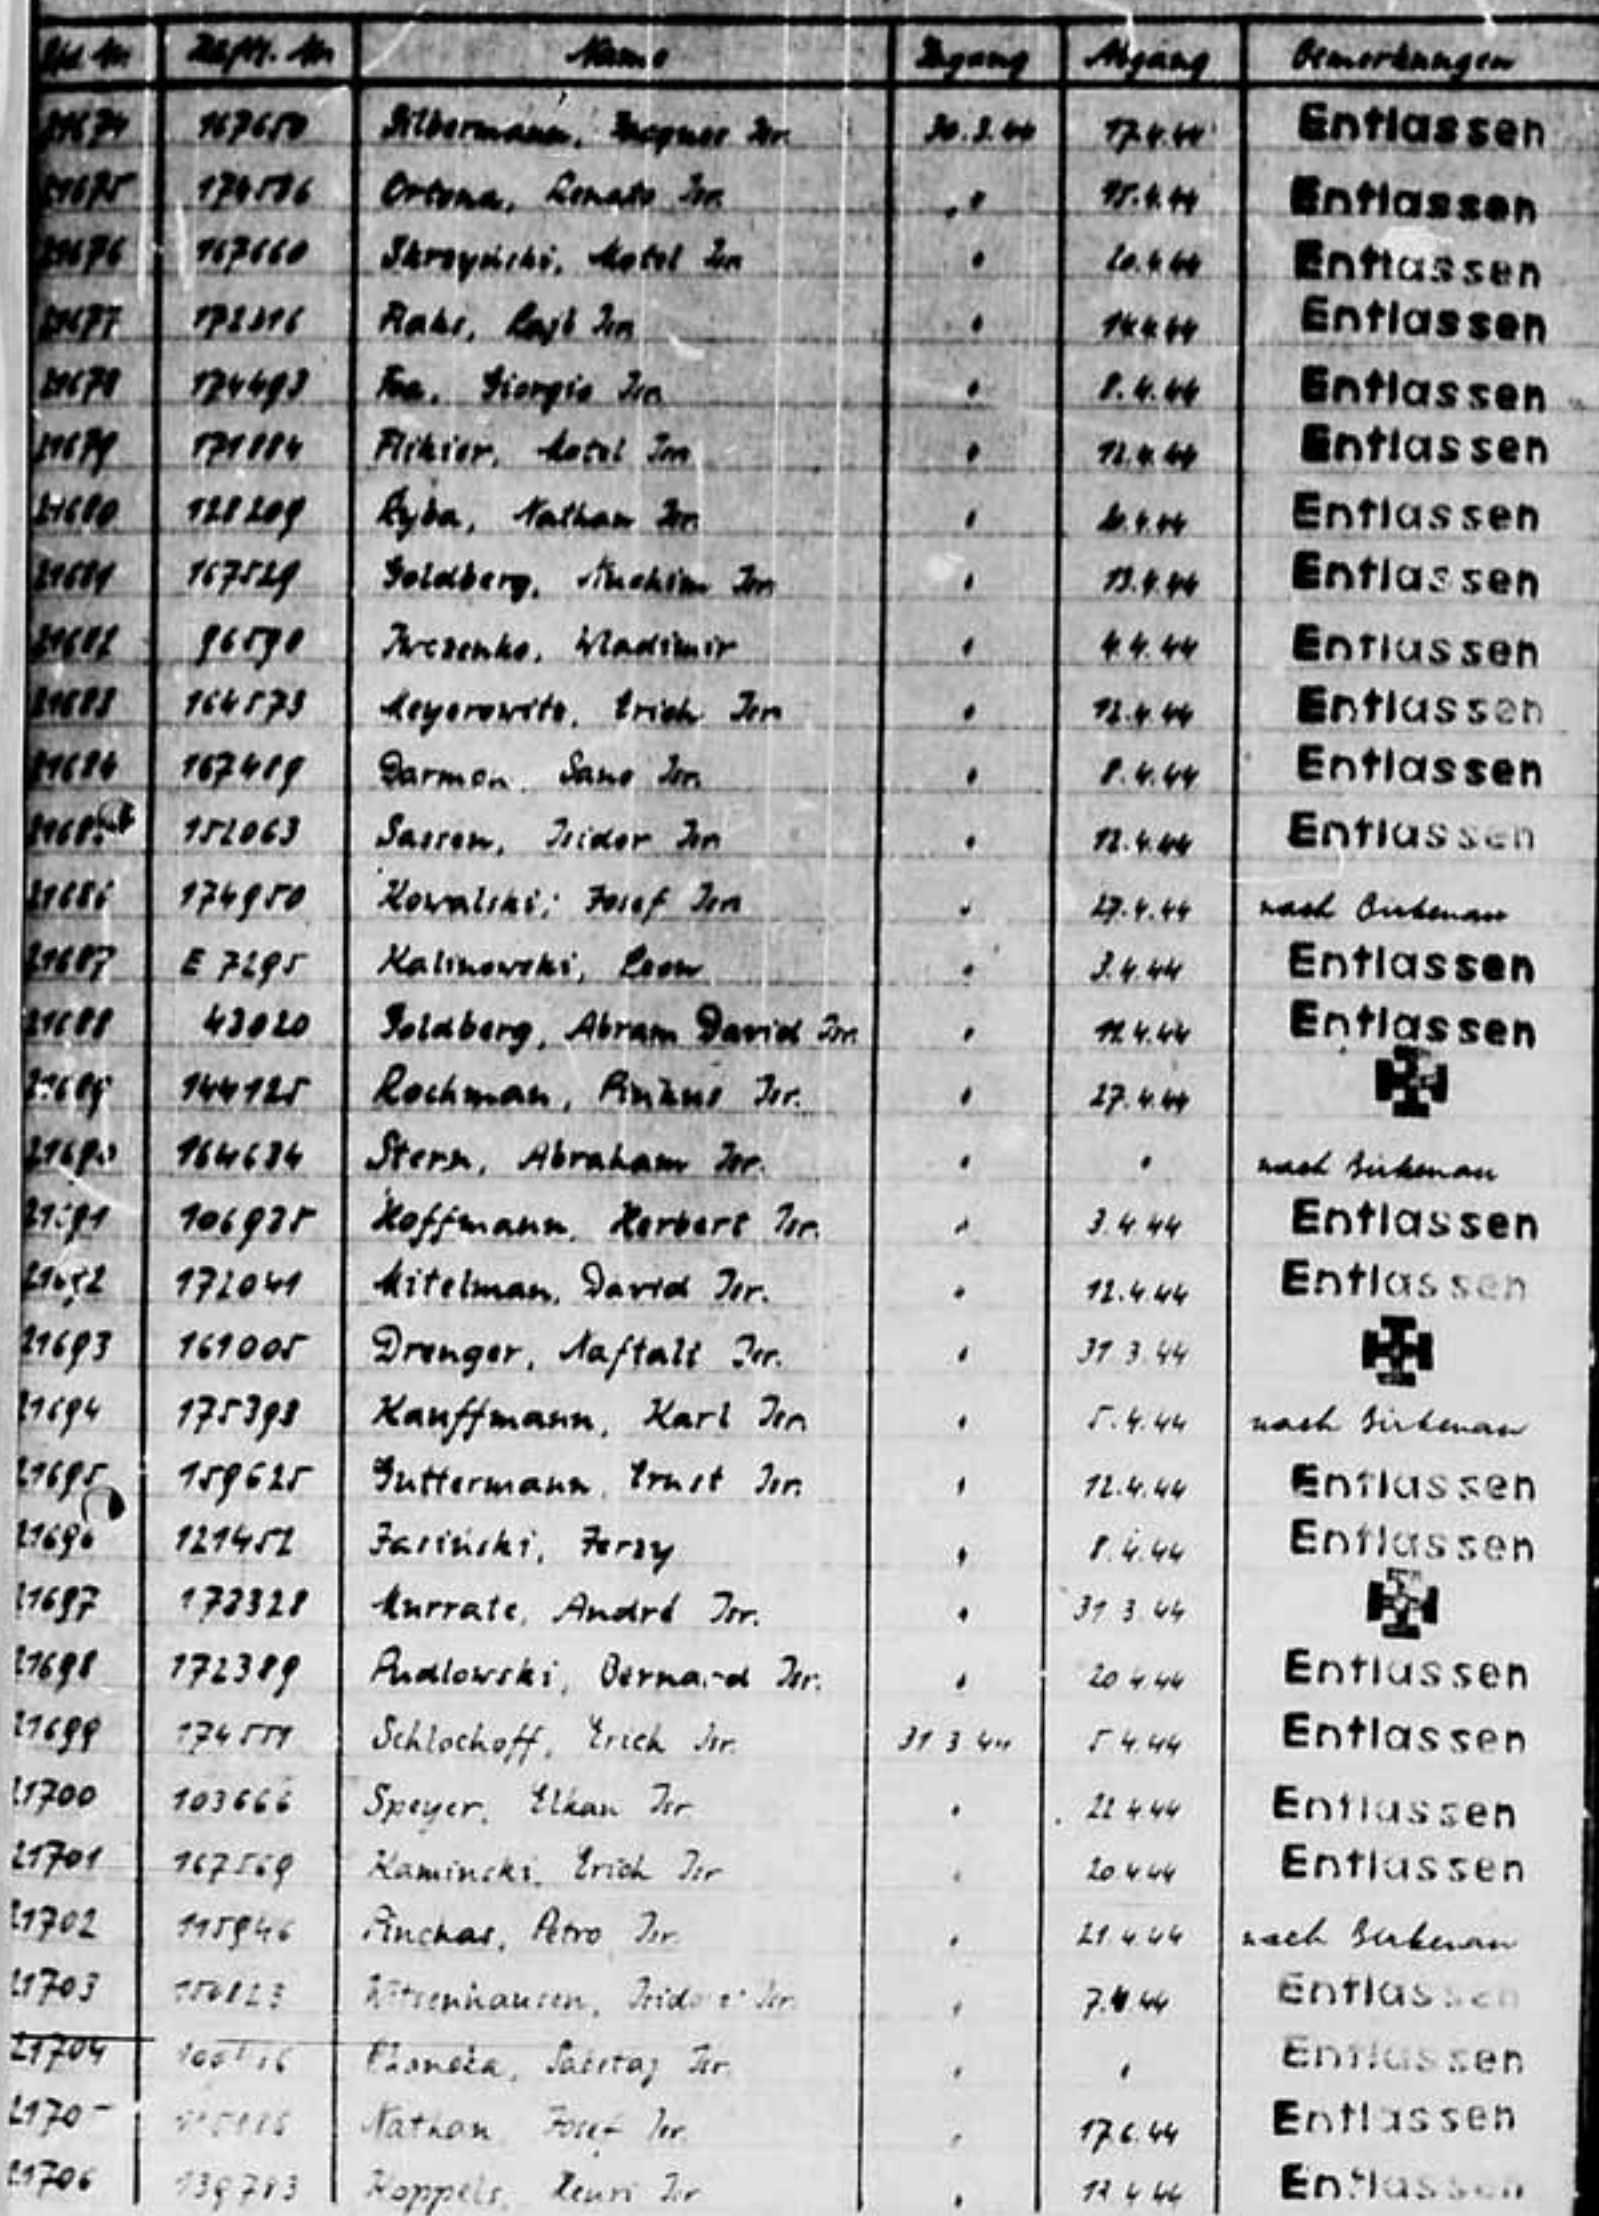 Lfd. Nr. Häftl. Nr. Name Zugang Abgang Bemerkungen
21674 167650 Silbermann, Isr. 30.3.44 17.4.44 Entlassen
21675 174536 Ortona, Renato Isr. " 15.4.44 Entlassen
21676 167660 Skrzyński, Motel Isr. " 20.4.44 Entlassen
21677 172316 Isr. " 14.4.44 Entlassen
21678 174493 Foa, Giorgio Isr. " 8.4.44 Entlassen
21679 171884 Plikier, Motel Isr. " 12.4.44 Entlassen
21680 128209 Ryba, Nathan Isr. " 20.4.44 Entlassen
21681 167529 Goldberg, Nuchim Isr. " 13.4.44 Entlassen
21682 96590 Iwczenko, Wladimir " 4.4.44 Entlassen
21683 164573 Meyerowitz, Erich Isr. " 12.4.44 Entlassen
21684 167489 Darmon, Sano Isr. " 8.4.44 Entlassen
21685 152063 Sasson, Isidor Isr. " 12.4.44 Entlassen
21686 174950 Kowalski, Josef Isr. " 27.4.44 nach Birkenau
21687 E 7295 Kalinowski, Leon " 3.4.44 Entlassen
21688 43020 Goldberg, Abram David Isr. " 12.4.44 Entlassen
21689 144125 Rochman, Pinkus Isr. " 27.4.44
21690 164634 Stern, Abraham Isr. " " nach Birkenau
21691 106935 Hoffmann, Herbert Isr. " 3.4.44 Entlassen
21692 172041 Mitelman, David Isr. " 12.4.44 Entlassen
21693 161005 Drenger, Naftali Isr. " 31.3.44
21694 175398 Kauffmann, Karl Isr. " 5.4.44 nach Birkenau
21695 159625 Guttermann, Ernst Isr. " 12.4.44 Entlassen
21696 121452 Jasiński, Jerzy " 8.4.44 Entlassen
21697 173328 Murrate, André Isr. " 31.3.44
21698 172389 Pudlowski, Bernard Isr. " 20.4.44 Entlassen
21699 174551 Schlochoff, Erich Isr. 31.3.44 5.4.44 Entlassen
21700 103666 Speyer, Elkan Isr. " 22.4.44 Entlassen
21701 167569 Kaminski, Erich Isr. " 20.4.44 Entlassen
21702 115946 Pinchas, Petro Isr. " 21.4.44 nach Birkenau
21703 150823 Witsenhausen, Isidor Isr. " 7.4.44 Entlassen
21704 Isr. " " Entlassen
21705 Nathan, Josef Isr. " 17.6.44 Entlassen
21706 139783 Koppels, Henri Isr. " 12.4.44 Entlassen